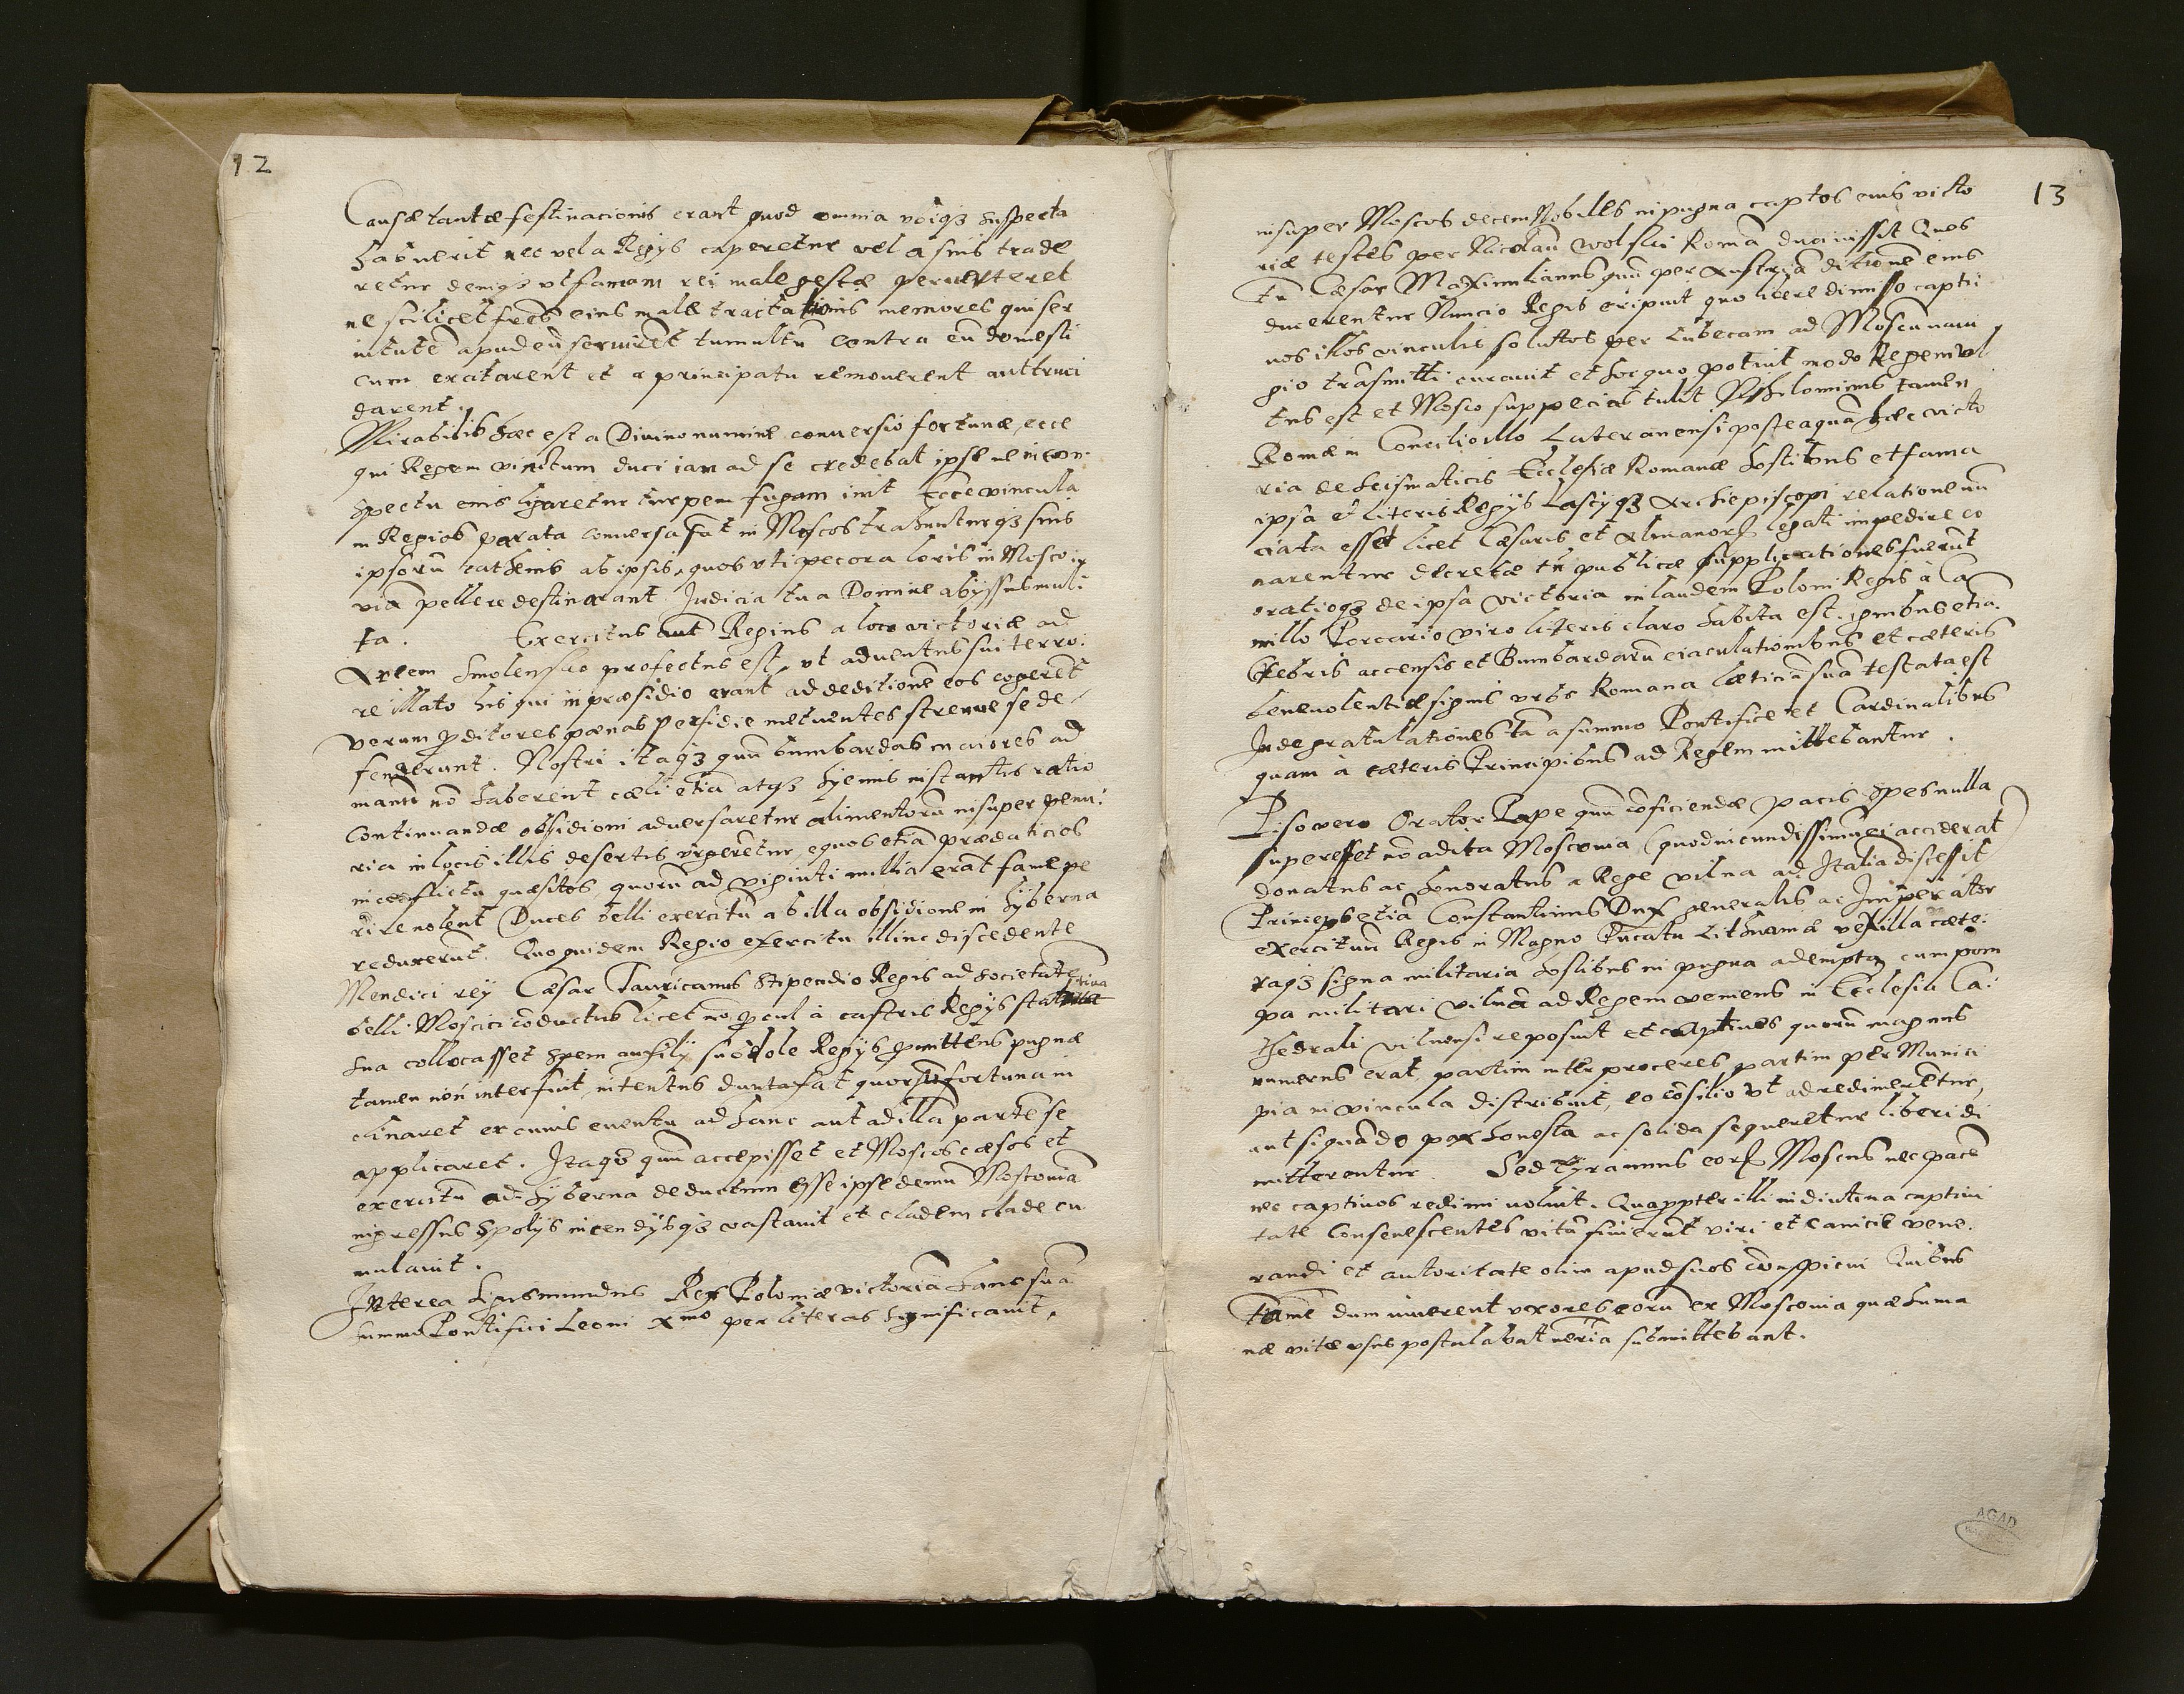 12
Causæ tantæ festinacionis erant quod omnia vbiqʒ suspecta
habuerit nec vel a Regys caperetur vel a suis trade
retur deniqʒ vt famam rei male gestæ peruerteret
ne scilicet fr̃es eius malæ tractationis memores qui ser
uitutẽ apud eũ seruirẽt tumultũ contra eũ domesti
cum excitarent et a principatu remouerent aut truci
darent.
Mirabilis hæc est a Diuino numine conuersio fortunæ, ecce
qui Regem vinctum duci iam ad se credebat ipse ne in con
spectu eius ligaretur turpem fugam init Ecce vincula
in Regios parata conuersa sũt in Moscos trahunturqʒ suis
ipsorũ cathenis ab ipsis, quos vti pecora loris in Mosco
viã pellere destinarant Judicia tua Domine abÿssus mul
ta. Exercitus aut̃ Regius a loco victoriæ ad
Arcem Smolensko profectus est, vt aduentus sui terro:
re illato his qui in præsidio erant ad deditionẽ eos cogerẽt
Verum p̱ditores pænas perfidiæ metuentes strenue se de
fenderunt. Nostri itaqʒ quũ bumbardas maiores ad
manũ nõ haberent cæli etiã atqʒ hyemis instantis ratio
continuandæ obsidioni aduersaretur alimentorũ insuper penu:
ria in locis illis desertis vrgerẽtur, equos etiã prædaticios
in conflictu quæsitos, quorũ ad viginti millia erãt fame pe
rire nolent Duces belli exercitũ ab illa obsidione in hyberna
reduxerũt. Quo quidem Regio exercitu illinc discedente
Mendici rey Cæsar Tauricanus stipendio Regis ad societatẽ
belli Moscici cõductus licet nõ p̱cul à castris Regys statiua
sua collocasset spem auxily subdole Regys p̱mittens pugnæ
tamen non interfuit, intentus duntaxat quorsũ fortuna in
clinaret ex cuius euentu ad hanc aut ad illã partẽ se
applicaret. Itaqʒ quũ accepisset et Moscos cæsos et
exercitũ ad hyberna deductum esse ipse demũ Moscouiã
ingressus spolÿs incendÿsqʒ vastauit et cladem clade cu
mulauit.
Interea Sigismundus Rex Poloniæ victoriã hanc suã
summo Pontifici Leoni Xmo per literas significauit,
13
insuper Moscos decem Nobiles in pugna captos eius victo
riæ testes per Nicolaũ Wolski Romã duci iussit Quos
tũ Cæsar Maximilianus quũ per Austriã ditionẽ eius
ducerentur Nuncio Regis eripuit quo libere dimisso capti
uos illos vinculis solutos per Lubecam ad Moscum naui
gio trãsmitti curauit et hoc quo potuit modo Regem vl
tus est et Mosco suppecias tulit Nihilominus tamen
Romæ in Concilio illo Lateranensi posteaquã hæc victo
ria de schismaticis Ecclesiæ Romanæ hostibus et fama
ipsa et literis Regys Lascyqʒ Archiepiscopi relatione nũ
ciata esset licet Cæsaris et Alman legati impedire co
narentur decretæ tñ publicæ supplicationes fuerũt
oratioqʒ de ipsa victoria in laudem Poloni Regis à Ca
millo Porcario viro literis claro habita est. ignibus etiã
crebris accensis et Bumbardarũ eiaculationibus et cæteris
beneuolentiæ signis vrbs Romana lætitiã suã testata est
Inde gratulationes tã a summo Pontifice et Cardinalibus
quam à cæteris Principibus ad Regem mittebantur.
Piso vero Orator Papæ quũ cõficiendæ pacis spes nulla
superesset nõ adita Moscouia (quod iucundissimũ ei acciderat)
donatus ac honoratus a Rege Vilna ad Italiã discessit
Princeps etiã Constantinus Dux generalis ac Imperator
exercituũ Regis in Magno Ducatu Lithuaniæ vexilla cæte:
raqʒ signa militaria hostibus in pugna adempta cum pom
pa militari Vilnã ad Regem veniens in Ecclesia Ca:
thedrali Vilnensi reposuit et captiuos quorũ magnus
numerus erat, partim inter proceres partim per Munici
pia in vincula distribuit, eo cõsilio vt ad redimerẽtur,
aut siquãdo pax honesta ac solida sequeretur liberi di
mitterentur. Sed Tyrannus Moscus nec pacẽ
nec captiuos redimi voluit. Quapp̱ter illi in diutina captiui
tate consenescentes vitã finierũt viri et canicie vene:
randi et autoritate olim apud suos conspicui Quibus
tamẽ dum viuerent vxores eorũ ex Moscouia quæ huma
næ vitæ vsus postulabat nẽria submittebant.
AGAD